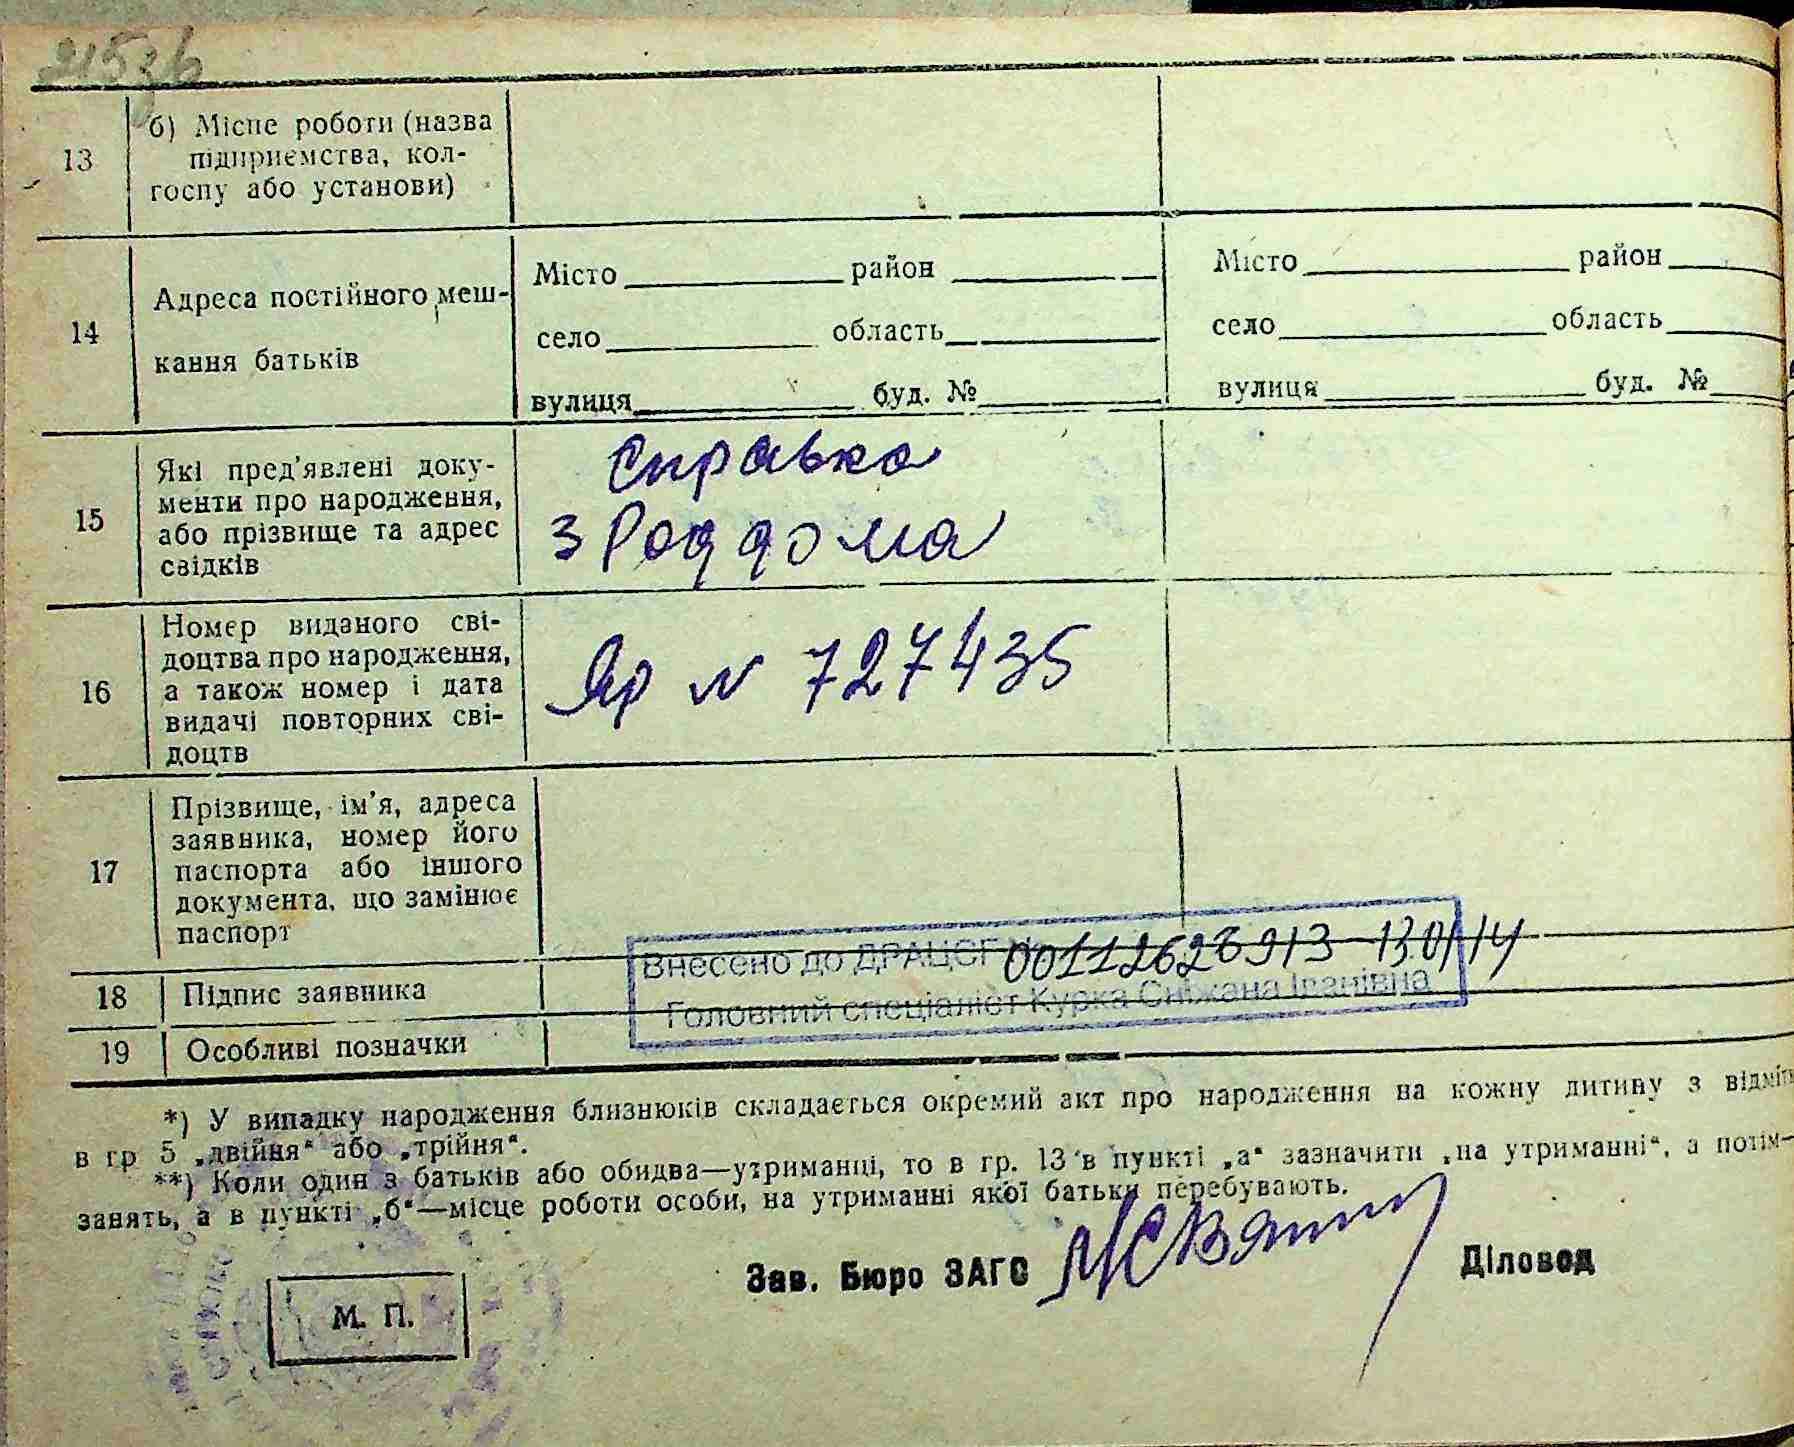 13
б) Місце роботи (назва
підприємства, кол-
госпу або установи)
14
Адреса постійного меш-
кання батьків
Місто район
село область
вулиця буд. №
Місто район
село область
вулиця буд. №
15
Які пред'явлені доку-
менти про народження,
або прізвище та адрес
свідків
Справка
з Роддома
16
Номер виданого сві-
доцтва про народження,
а також номер і дата
видачі повторних сві-
доцтв
Яр N 727435
17
Прізвище, ім'я, адреса
заявника, номер його
паспорта або іншого
документа, що замінює
паспорт
Внесено до ДРАЦСГ
Головний спеціаліст Курка Сніжана Іванівна
18
Підпис заявника
19
Особливі позначки
*) У випадку народження близнюків складається окремий акт про народження на кожну дитину з відміт
в гр 5 „двійня“ або „трійня“.
**) Коли один з батьків або обидва—утриманці, то в гр. 13 в пункті „а“ зазначити „на утриманні“, а потім—
занять, а в пункті „б“—місце роботи особи, на утриманні якої батьки перебувають.
Зав. Бюро ЗАГС Діловод
М. П.